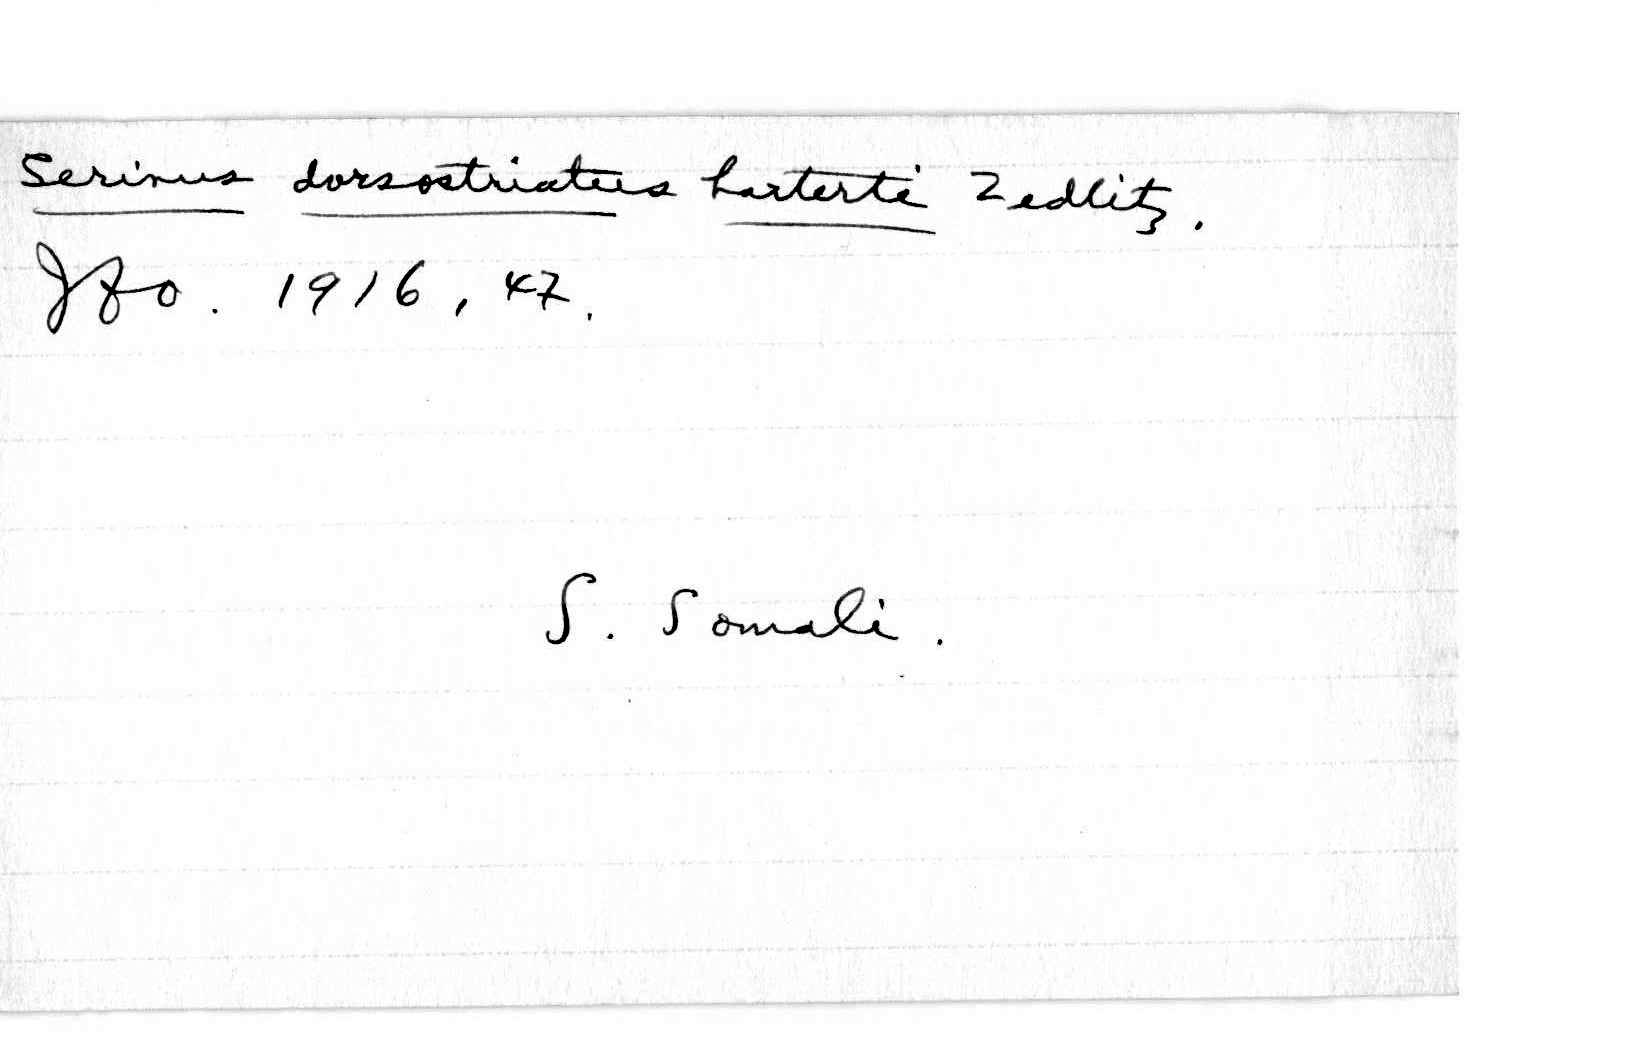 Serinus dorsostriatus harterti Zedlitz.
JfO. 1916, 47.
S. Somali.